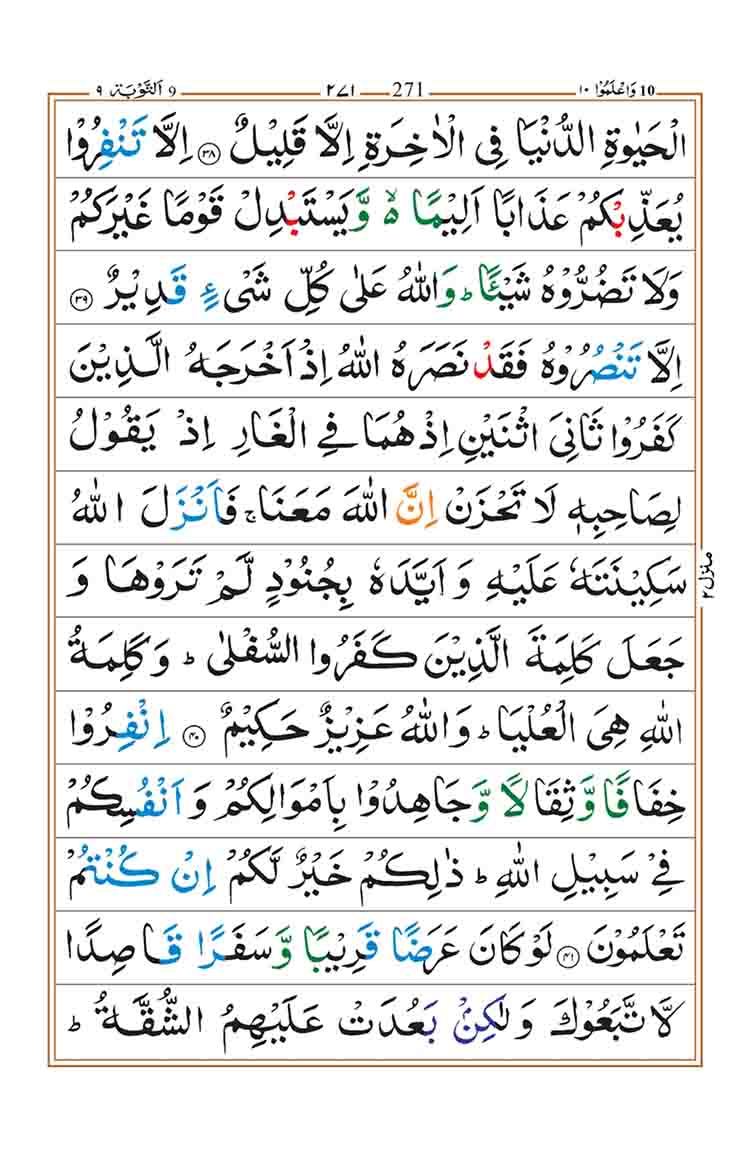 10 وَاعْلَمُوْۤا ١٠ 271 ٢٧١ 9 اَلتَّوْبَة ٩
الْحَيٰوةِ الدُّنْيَا فِى الْاٰخِرَةِ اِلَّا قَلِيْلٌ ﴿٣٨﴾ اِلَّا تَنْفِرُوْا
يُعَذِّبْكُمْ عَذَابًا اَلِيْمًا ەۙ وَّيَسْتَبْدِلْ قَوْمًا غَيْرَكُمْ
وَلَا تَضُرُّوْهُ شَيْـًٔاؕ وَاللّٰهُ عَلٰى كُلِّ شَىْءٍ قَدِيْرٌ ﴿٣٩﴾
اِلَّا تَنْصُرُوْهُ فَقَدْ نَصَرَهُ اللّٰهُ اِذْ اَخْرَجَهُ الَّذِيْنَ
كَفَرُوْا ثَانِىَ اثْنَيْنِ اِذْ هُمَا فِى الْغَارِ اِذْ يَقُوْلُ
لِصَاحِبِهٖ لَا تَحْزَنْ اِنَّ اللّٰهَ مَعَنَاۚ فَاَنْزَلَ اللّٰهُ
سَكِيْنَتَهٗ عَلَيْهِ وَ اَيَّدَهٗ بِجُنُوْدٍ لَّمْ تَرَوْهَا وَ
جَعَلَ كَلِمَةَ الَّذِيْنَ كَفَرُوا السُّفْلٰىؕ وَكَلِمَةُ
اللّٰهِ هِىَ الْعُلْيَاؕ وَاللّٰهُ عَزِيْزٌ حَكِيْمٌ ﴿٤٠﴾ اِنْفِرُوْا
خِفَافًا وَّثِقَالًا وَّجَاهِدُوْا بِاَمْوَالِكُمْ وَ اَنْفُسِكُمْ
فِىْ سَبِيْلِ اللّٰهِؕ ذٰلِكُمْ خَيْرٌ لَّكُمْ اِنْ كُنْتُمْ
تَعْلَمُوْنَ ﴿٤١﴾ لَوْ كَانَ عَرَضًا قَرِيْبًا وَّسَفَرًا قَاصِدًا
لَّا تَّبَعُوْكَ وَلٰكِنْۢ بَعُدَتْ عَلَيْهِمُ الشُّقَّةُؕ
منزل ٢